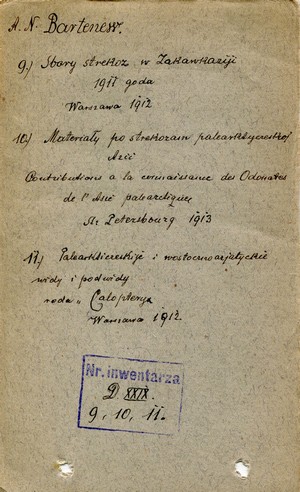 A. N. Bartenew.
9.) Sbory strekoz w Zakawkaziji
1911 goda
Warszawa 1912
10.) Materiały po strekozam palearkticzeskoj
Azii
Contributions a la connaissance des Odonates
de l'Asie paléarctique
St. Petersbourg 1913
11.) Palearkticzeskije i wostocznoazjatyckie
widy i podwidy
roda „Calopteryx
Warszawa 1912.
Nr. inwentarza
D. XXIX.
9. 10. 11.